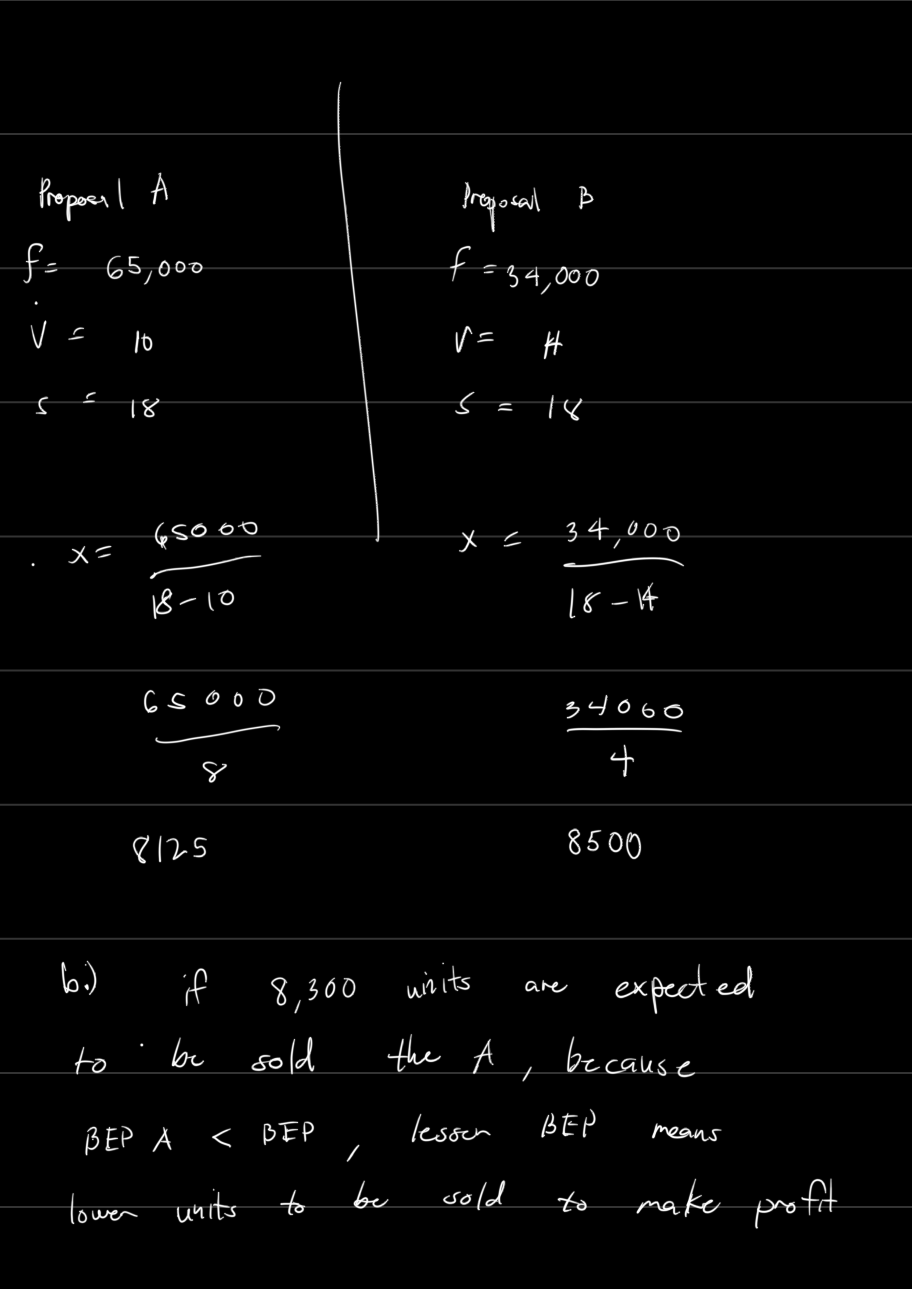 Proposal A
f= 65,000
V = 10
s = 18
x = 65000 / 18-10
65000 / 8
8125
Proposal B
f = 34,000
V = 14
S = 18
x = 34,000 / 18-14
34000 / 4
8500
b.) if 8,300 units are expected
to be sold the A, because
BEP A < BEP, lesser BEP means
lower units to be sold to make profit